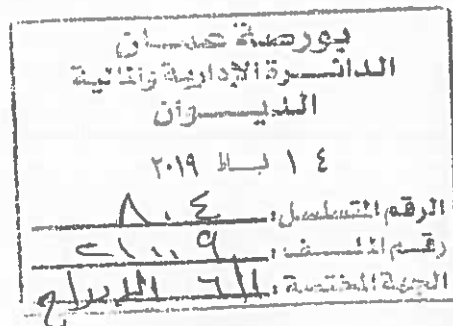 بورصة عمان
الدائرة الإدارية والمالية
الديوان
١٤ شباط ٢٠١٩
الرقم المتسلسل: ٨٠٤
رقم الملف: ٢١٠٠٩
الجهة المختصة: الإدراج